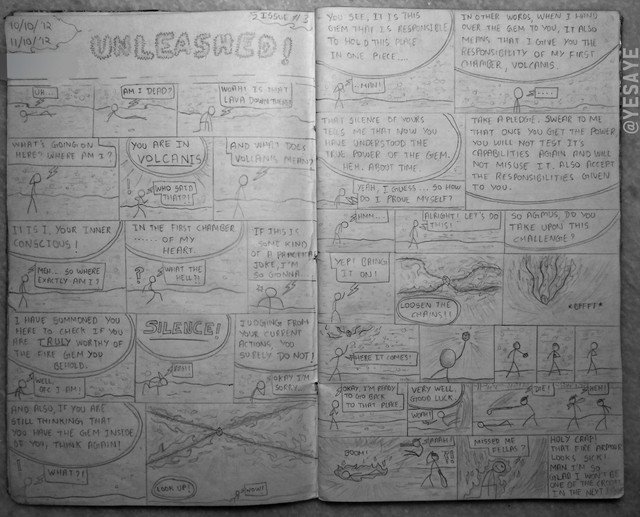 10/10/'12
11/10/'12
ISSUE #3
UNLEASHED!
UH...
AM I DEAD?
WOAH! IS THAT
LAVA DOWN THERE?
WHAT'S GOING ON
HERE? WHERE AM I?
YOU ARE IN
VOLCANIS
WHO SAID
THAT?!
AND WHAT DOES
VOLCANIS MEAN?
IT IS I, YOUR INNER
CONSCIOUS!
MEH... SO WHERE
EXACTLY AM I?
IN THE FIRST CHAMBER
...... OF MY
HEART.
WHAT THE
HELL?!
IF THIS IS
SOME KIND
OF A PRACTICAL
JOKE, I'M
SO GONNA
I HAVE SUMMONED YOU
HERE TO CHECK IF YOU
ARE TRULY WORTHY OF
THE FIRE GEM YOU
BEHOLD.
WELL,
OFC I AM!
SILENCE!
JUDGING FROM
YOUR CURRENT
ACTIONS, YOU
SURELY DO NOT!
OKAY I'M
SORRY..
AND ALSO, IF YOU ARE
STILL THINKING THAT
YOU HAVE THE GEM INSIDE
OF YOU, THINK AGAIN!
WHAT?!
LOOK UP!
WOW!
YOU SEE, IT IS THIS
GEM THAT IS RESPONSIBLE
TO HOLD THIS PLACE
IN ONE PIECE....
...MAN!
IN OTHER WORDS, WHEN I HAND
OVER THE GEM TO YOU, IT ALSO
MEANS THAT I GIVE YOU THE
RESPONSIBILITY OF MY FIRST
CHAMBER, VOLCANIS.
....
THAT SILENCE OF YOURS
TELLS ME THAT NOW YOU
HAVE UNDERSTOOD THE
TRUE POWER OF THE GEM.
HEH. ABOUT TIME.
YEAH, I GUESS... SO HOW
DO I PROVE MYSELF?
TAKE A PLEDGE. SWEAR TO ME
THAT ONCE YOU GET THE POWER
YOU WILL NOT TEST IT'S
CAPABILITIES AGAIN AND WILL
NOT MISUSE IT. ALSO ACCEPT
THE RESPONSIBILITIES GIVEN
TO YOU.
HMM...
ALRIGHT! LET'S DO
THIS!
SO AGMUS, DO YOU
TAKE UPON THIS
CHALLENGE?
YEP! BRING
IT ON!
LOOSEN THE
CHAINS!!
*BPFFT*
HERE IT COMES!
OKAY. I'M READY
TO GO BACK
TO THAT PLACE
VERY WELL.
GOOD LUCK
WOAH!
DIE!
HEH!
BOOM!
AAAH!
MISSED ME
FELLAS?
HOLY CRAP!
THAT FIRE ARMOR
LOOKS SICK!
MAN I'M SO
GLAD I WON'T BE
ONE OF THE CROOKS
IN THE NEXT
@YESAYE